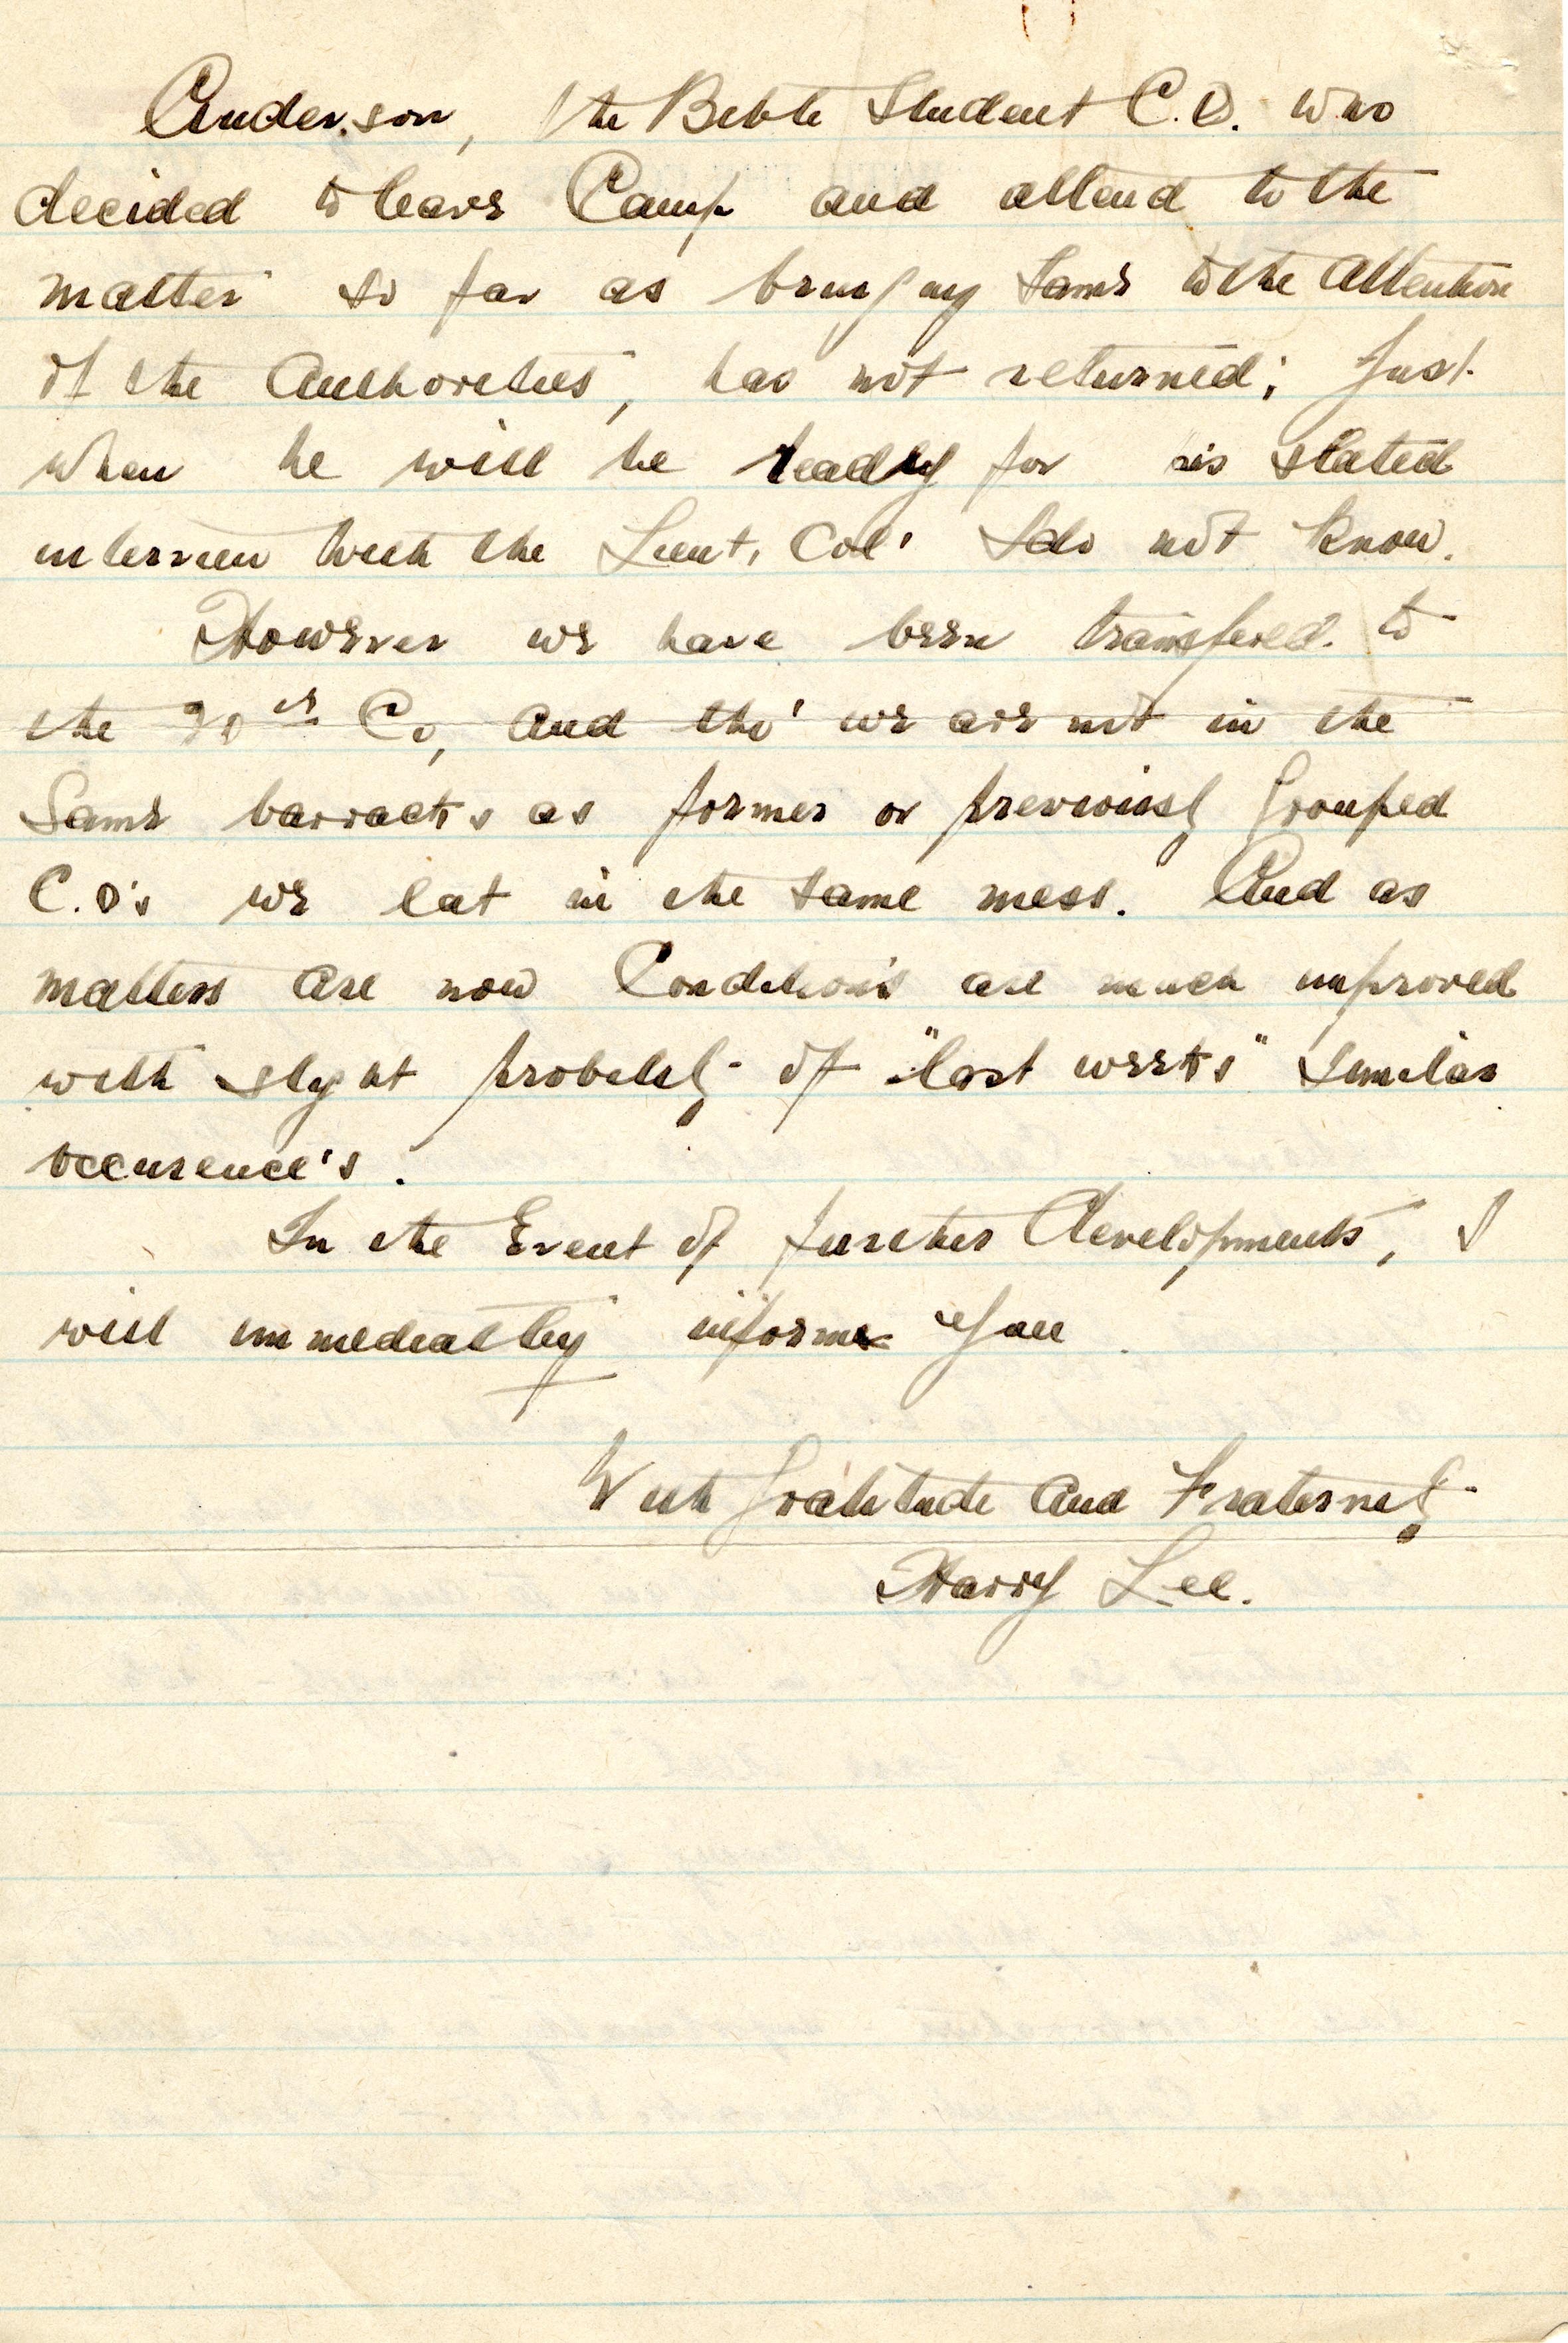 Anderson, the Bible Student C.O. who
decided to leave Camp and attend to the
matter so far as bringing same to the Attention
of the Authorities, has not returned; Just
when he will be ready for his stated
interview with the Lieut. Col. I do not know.
However we have been transfered to
the Co, and tho' we are not in the
Same barracks as former or previously Grouped
C.O's we eat in the same mess. And as
matters are now Conditions are much improved
with slight probability of "last weeks" similar
occurence's.
In the Event of further Developments, I
will immediatley inform You.
With Gratitude and Fraternity
Harry Lee.